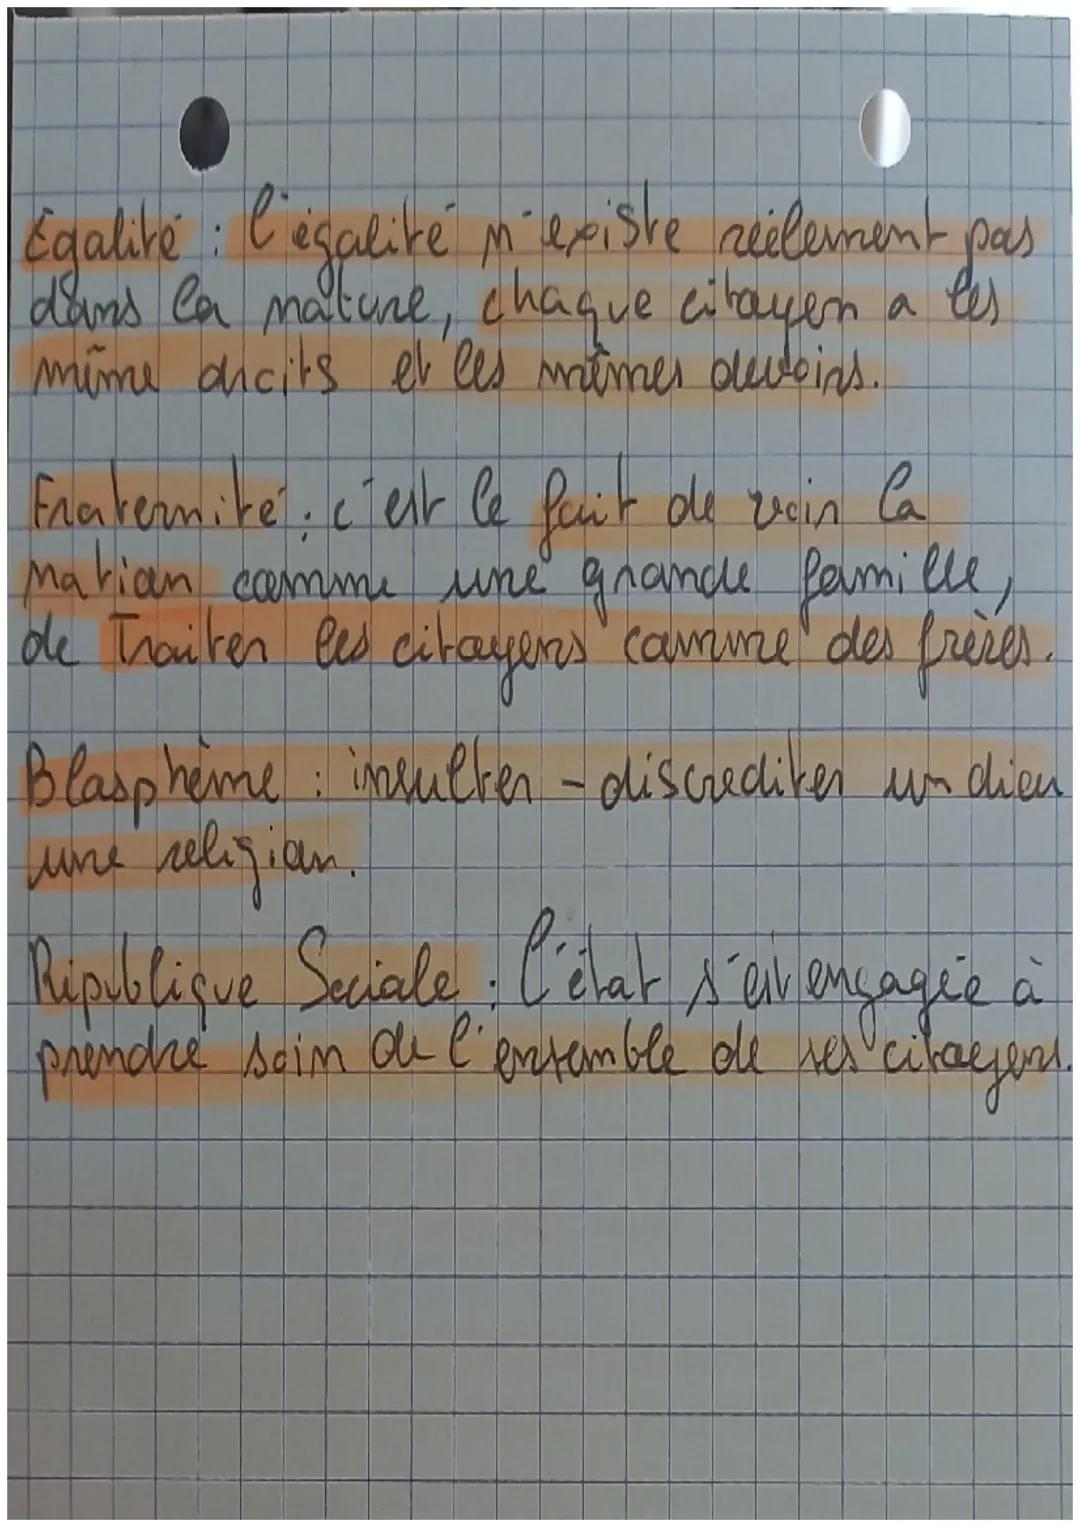 Égalité : l'égalité n'existe réélement pas
dans la nature, chaque citoyen a les
même droits et les mêmes devoirs.
Fraternité : c'est le fait de voir la
nation comme une grande famille,
de Traiter les citoyens comme des frères.
Blasphème : insulter - discrediter un dieu
une religion.
République Sociale : l'état s'est engagée à
prendre soin de l'ensemble de ses citoyens.